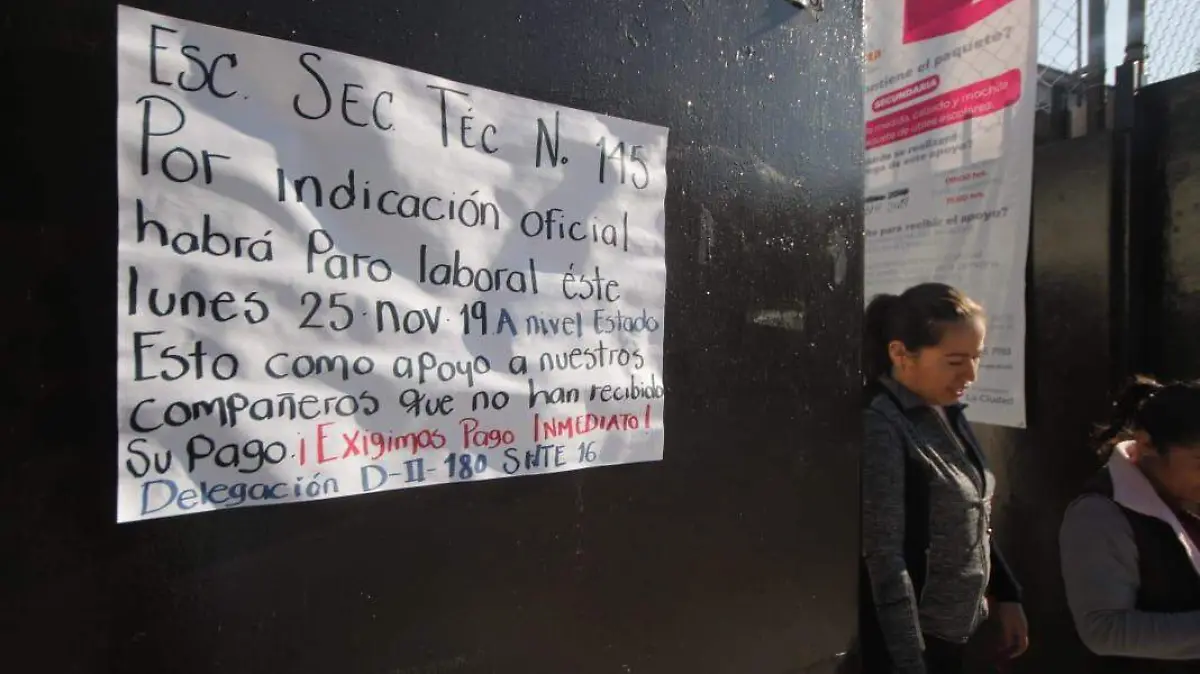 Esc. Sec. Téc N. 145
Por indicación oficial
habrá Paro laboral éste
lunes 25.Nov.19. A nivel Estado
Esto como apoyo a nuestros
compañeros que no han recibido
Su Pago. ¡Exigimos Pago INMEDIATO!
Delegación D-II-180 SNTE 16
ntiene el paquete?
SECUNDARIA
medida, calzado y mochila
de útiles escolares.
de este apoyo?
para recibir el apoyo?
La Ciudad